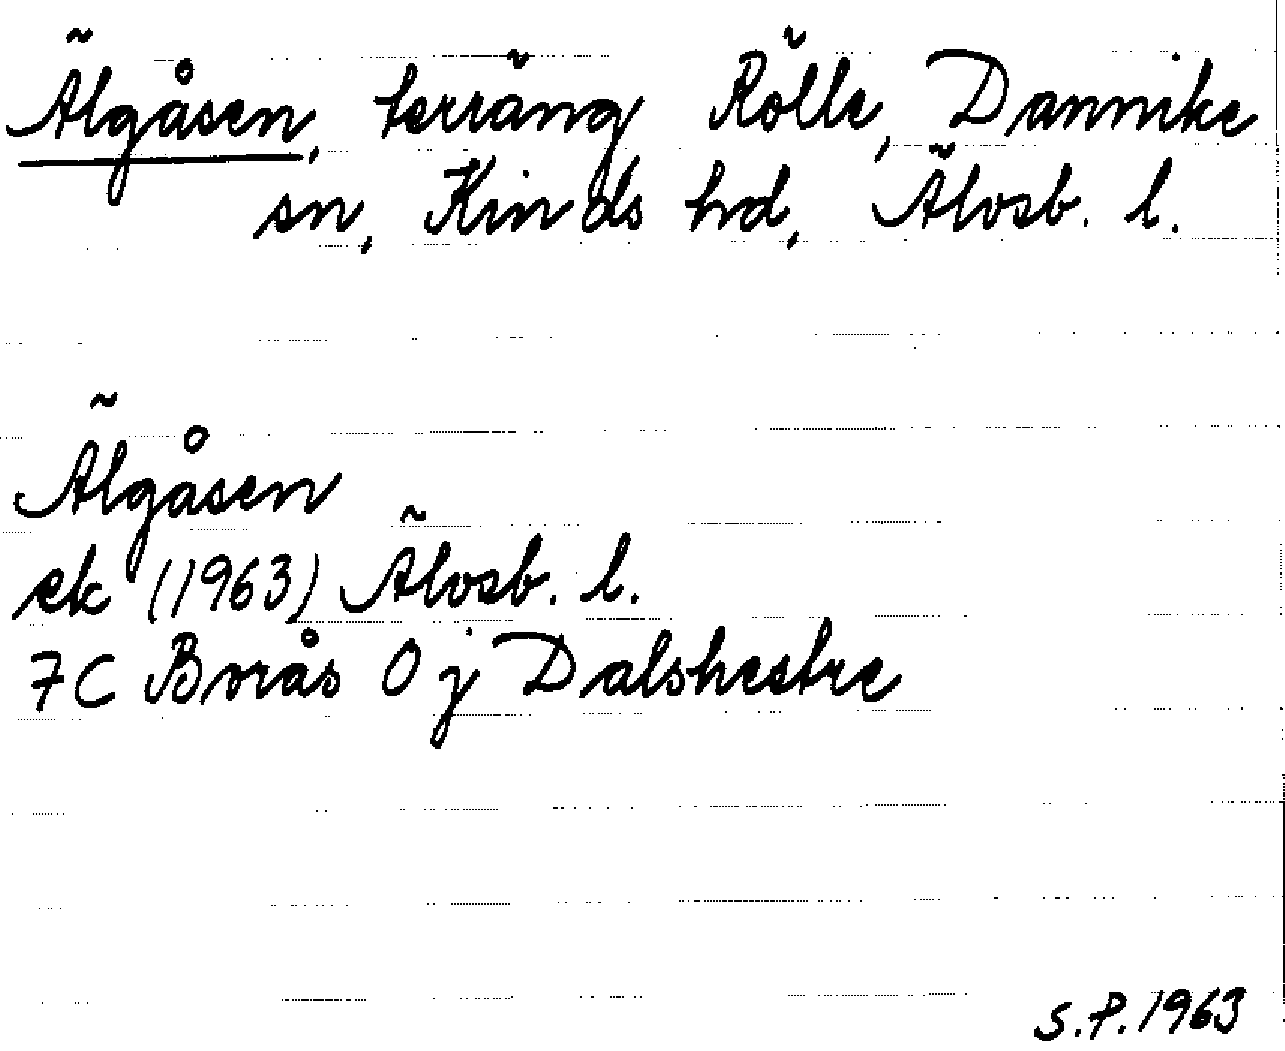 Älgåsen, terräng Rölle, Dannike
sn, Kinds hd, Älvsb. l.
Älgåsen
ek (1963) Älvsb. l.
7C Borås Oj Dalshestre
S.P. 1963